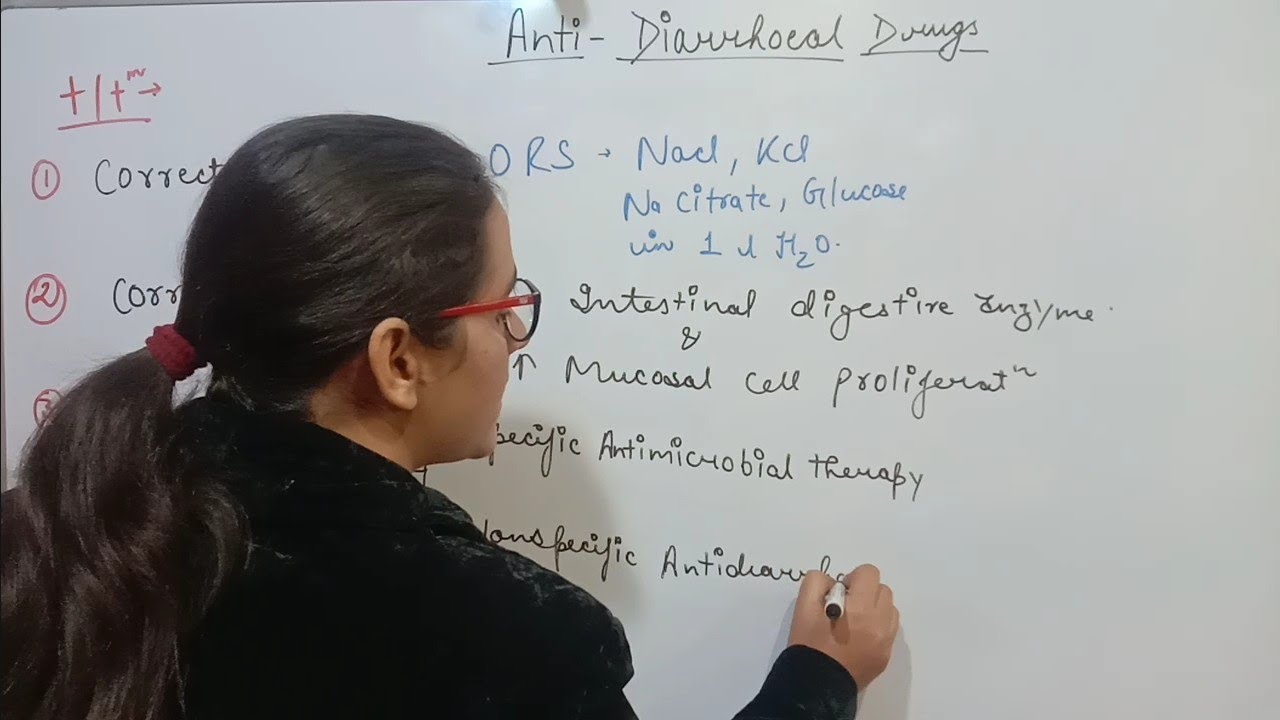 Anti-Diarrhoeal Drugs
t/t^m →
① Correct
ORS → Nacl, Kcl
Na Citrate, Glucose
in 1 l H₂O.
② Corr
Intestinal digestive Enzyme.
&
↑ Mucosal cell proliferatⁿ
③
pecific Antimicrobial therapy
onspecific Antidiarrho